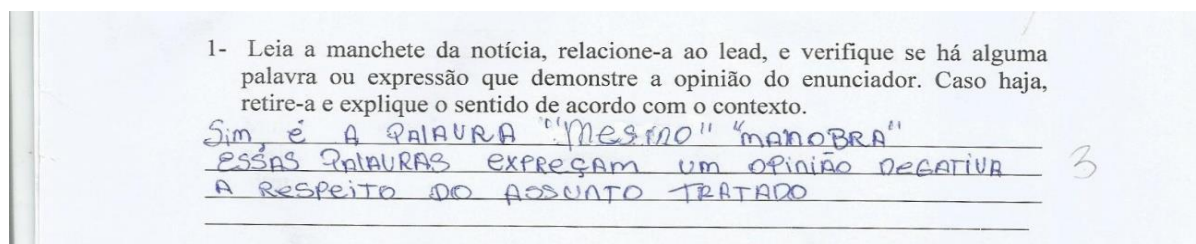 1- Leia a manchete da notícia, relacione-a ao lead, e verifique se há alguma
palavra ou expressão que demonstre a opinião do enunciador. Caso haja,
retire-a e explique o sentido de acordo com o contexto.
Sim, é A PALAVRA "Mesmo" "MANOBRA"
ESSAS PALAVRAS EXPREÇAM UM OPINIÃO NEGATIVA
A RESPEITO DO ASSUNTO TRATADO
3